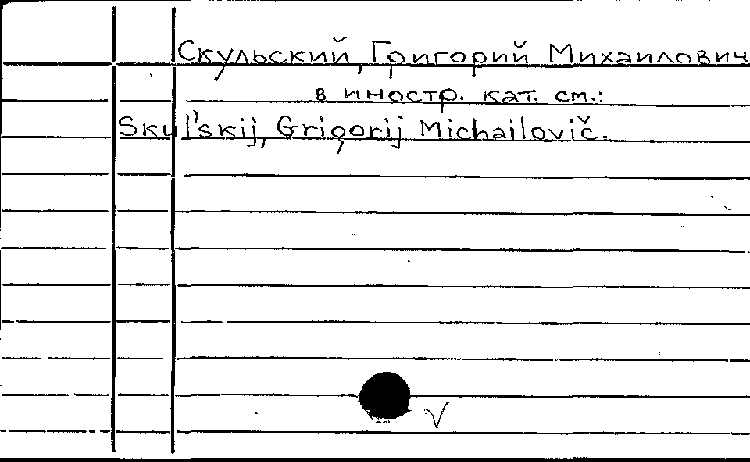 Скульский, Григорий Михаилович
в иностр. кат. см.:
Skul'skij, Grigorij Michailovič.